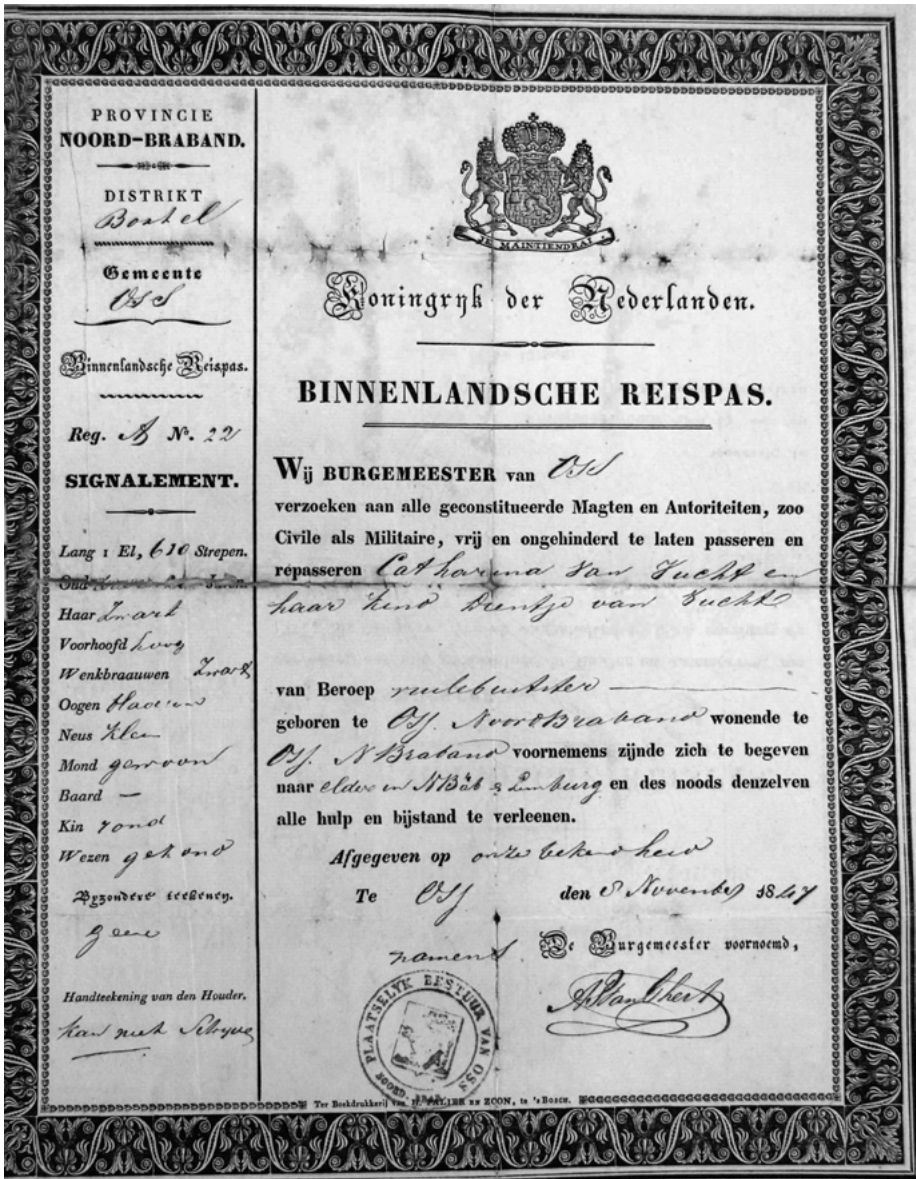 PROVINCIE
NOORD-BRABAND.
DISTRIKT
Boxtel
Gemeente
Oss
Binnenlandsche Reispas.
Reg. A No. 22
SIGNALEMENT.
Lang 1 El, 610 Strepen.
Oud Jaren
Haar Zwart
Voorhoofd hoog
Wenkbraauwen Zwart
Oogen
Neus Klein
Mond gewoon
Baard —
Kin rond
Wezen gezond
Byzondere teekenen.
geene
Handteekening van den Houder.
kan niet Schryve
JE MAINTIENDRAI
Koningryk der Nederlanden.
BINNENLANDSCHE REISPAS.
Wij BURGEMEESTER van Oss
verzoeken aan alle geconstitueerde Magten en Autoriteiten, zoo
Civile als Militaire, vrij en ongehinderd te laten passeren en
repasseren Catharina van Vucht en
haar kind Dientje van Vucht
van Beroep
geboren te Oss NoordBraband wonende te
Oss N Braband voornemens zijnde zich te begeven
naar elders in NBab & Limburg en des noods denzelven
alle hulp en bijstand te verleenen.
Afgegeven op onze bekendheid
Te Oss den 8 November 1847
namens De Burgemeester voornoemd,
PLAATSELYK BESTUUR VAN OSS
Ter Boekdrukkerij van H. PALIER EN ZOON, te 's BOSCH.